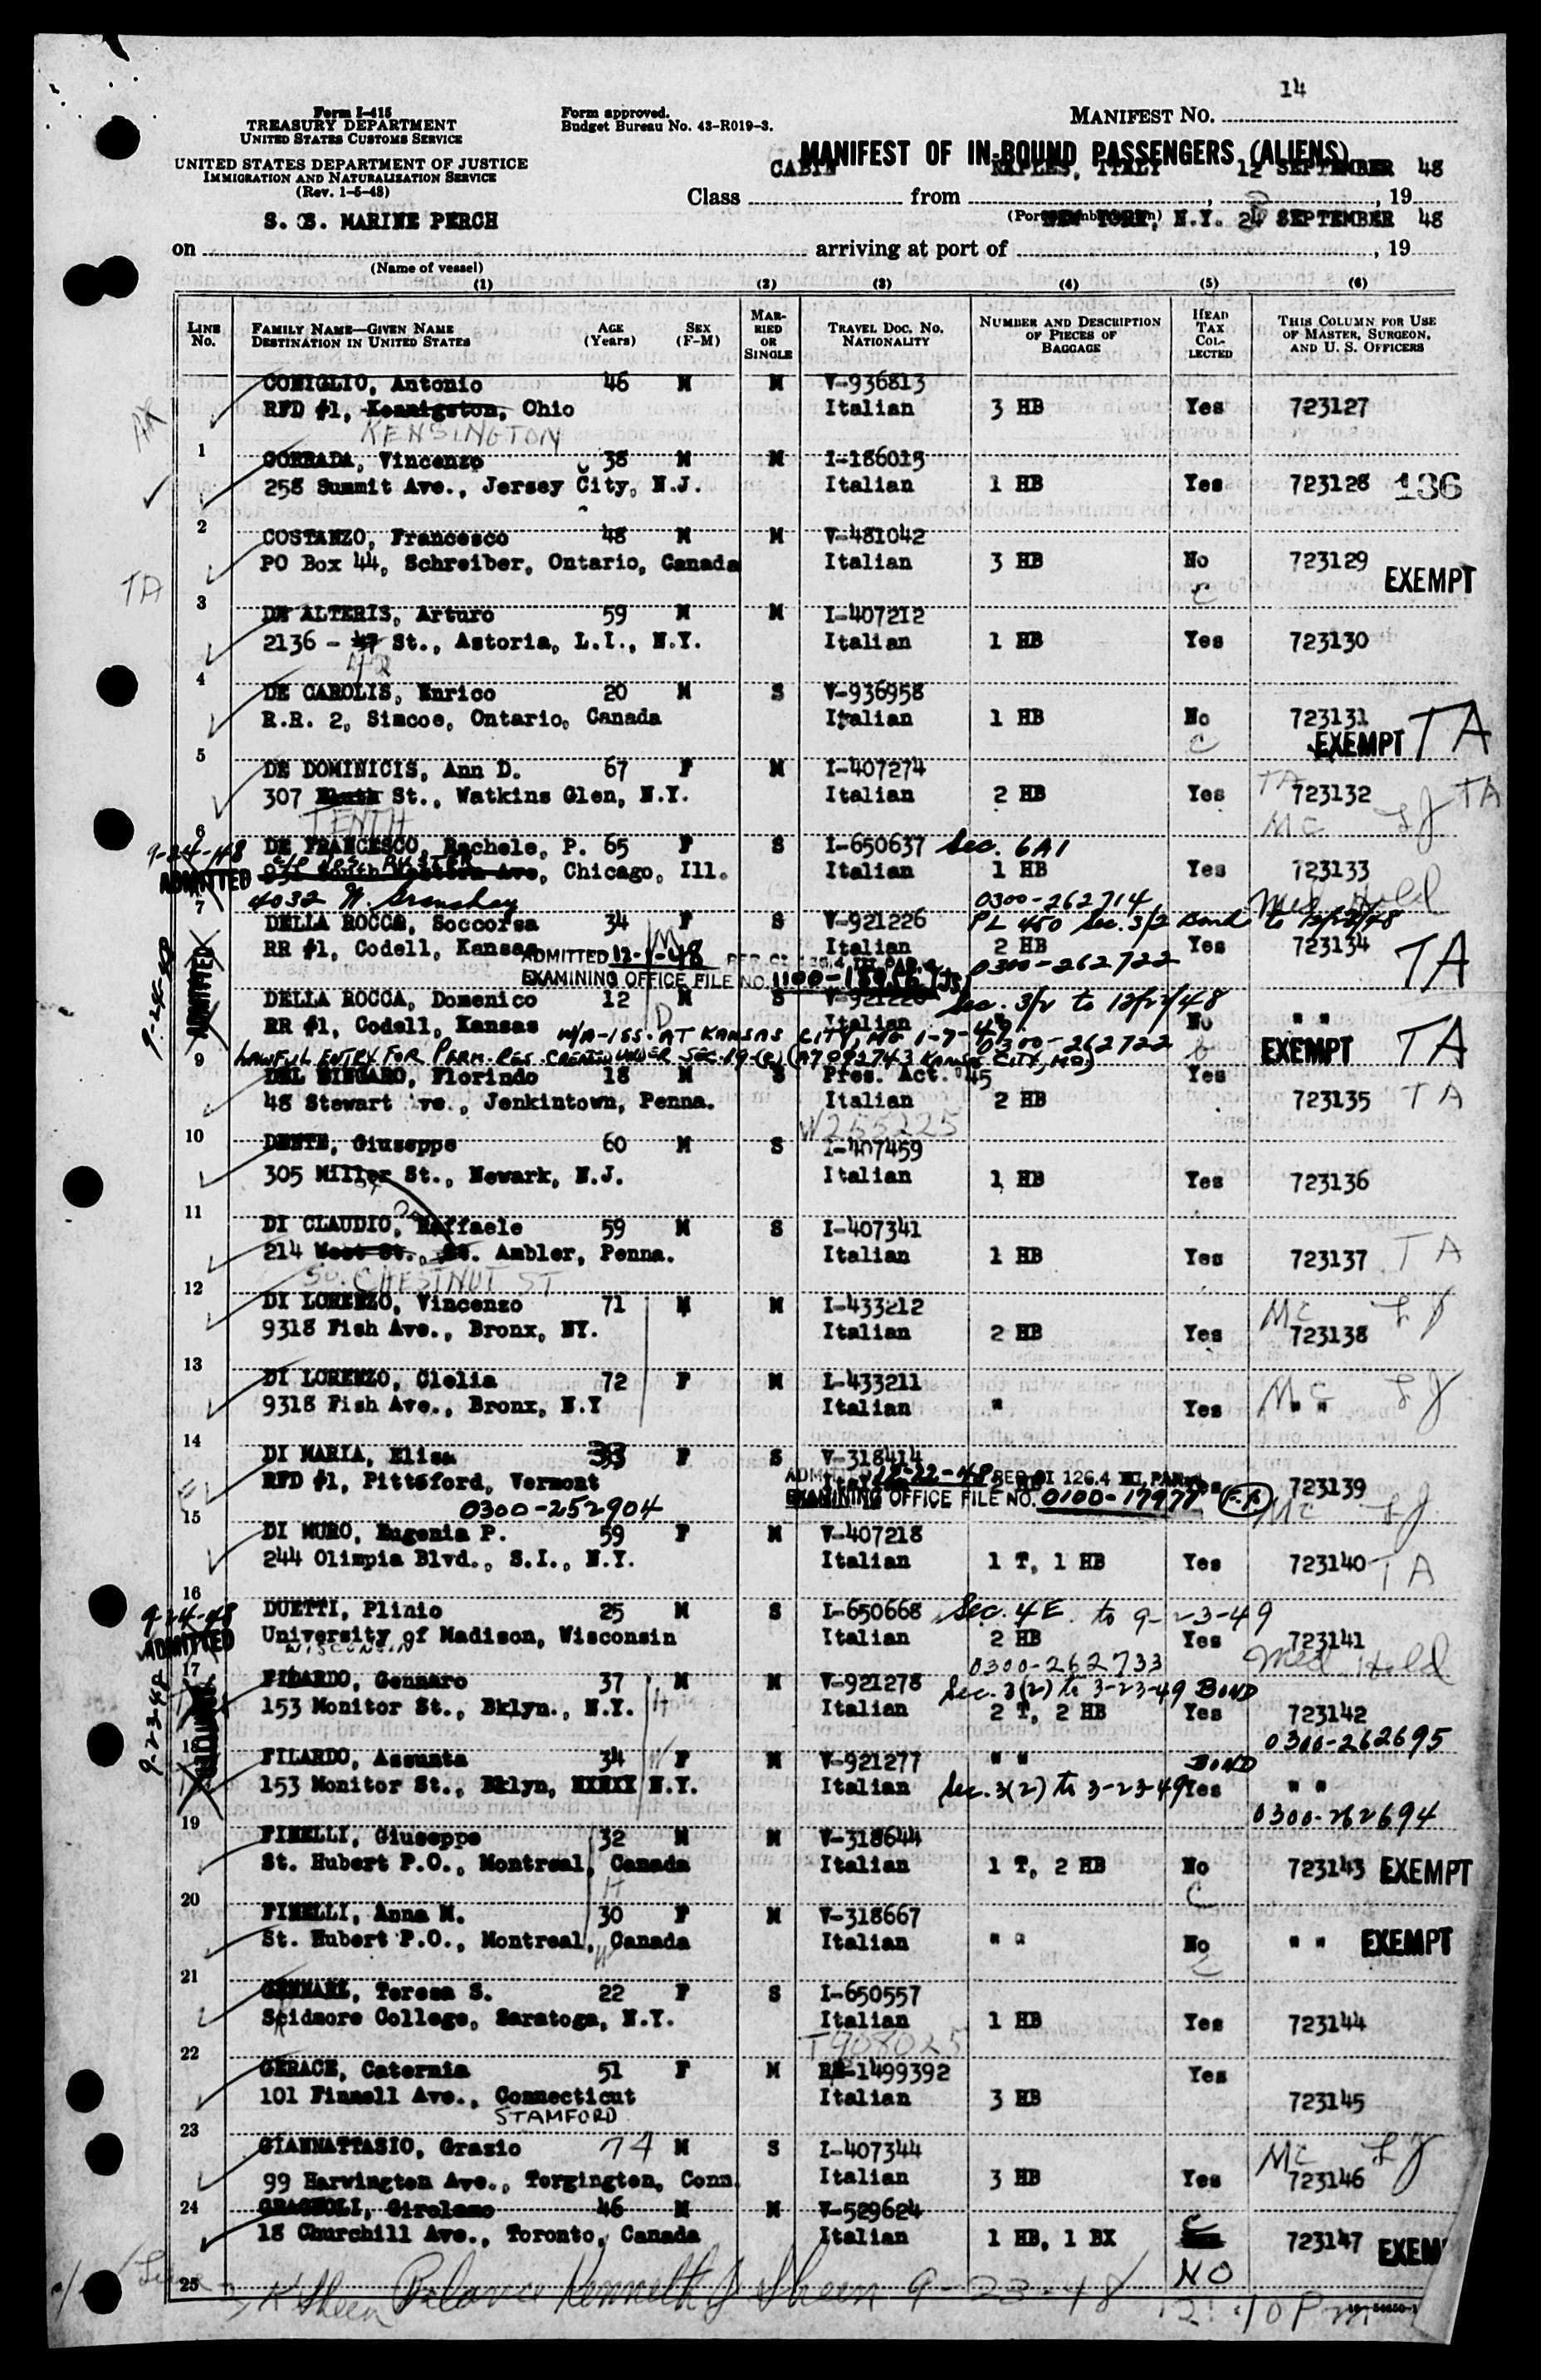 14
Form I-415
TREASURY DEPARTMENT
UNITED STATES CUSTOMS SERVICE
UNITED STATES DEPARTMENT OF JUSTICE
IMMIGRATION AND NATURALIZATION SERVICE
(Rev. 1-5-48)
Form approved.
Budget Bureau No. 43-R019-3.
MANIFEST NO.
MANIFEST OF IN-BOUND PASSENGERS (ALIENS)
Class CABIN from NAPLES, ITALY, 12 SEPTEMBER, 19 48
(Port of embarkation)
on S. S. MARINE PERCH arriving at port of NEW YORK, N.Y. SEPTEMBER, 19 48
(Name of vessel)
(1) (2) (3) (4) (5) (6)
LINE No. FAMILY NAME—GIVEN NAME DESTINATION IN UNITED STATES AGE (Years) SEX (F-M) MARRIED OR SINGLE TRAVEL DOC. NO. NATIONALITY NUMBER AND DESCRIPTION OF PIECES OF BAGGAGE HEAD TAX COLLECTED THIS COLUMN FOR USE OF MASTER, SURGEON, AND U. S. OFFICERS
CONIGLIO, Antonio 46 M M V-936813
RFD #1, Kennigston, Ohio Italian 3 HB Yes 723127
KENSINGTON
1
CORRADA, Vincenzo 38 M M I-186015
258 Summit Ave., Jersey City, N.J. Italian 1 HB Yes 723128 136
2
COSTANZO, Francesco 48 M M V-481042
PO Box 44, Schreiber, Ontario, Canada Italian 3 HB No 723129 EXEMPT
TA C
3
DE ALTERIS, Arturo 59 M M I-407212
2136 - 47 St., Astoria, L.I., N.Y. Italian 1 HB Yes 723130
42
4
DE CAROLIS, Enrico 20 M S V-936958
R.R. 2, Simcoe, Ontario, Canada Italian 1 HB No 723131
C EXEMPT TA
5
DE DOMINICIS, Ann D. 67 F M I-407274
307 St., Watkins Glen, N.Y. Italian 2 HB Yes TA 723132 TA
TENTH MC
6
9-24-48 DE FRANCESCO, Rachele, P. 65 F S I-650637 Sec. 6A1
ADMITTED 931 South Western Ave, Chicago, Ill. Italian 1 HB Yes 723133
4032 W. 0300-262714 Med Hold
7
DELLA ROCCA, Soccorsa 34 F S V-921226 PL 450 Sec. 3/2 Bond to 12/22/48
RR #1, Codell, Kansas Italian 2 HB Yes 723134 TA
ADMITTED 12-1-48 0300-262722
EXAMINING OFFICE FILE NO.
9-24-48 ADMITTED
DELLA ROCCA, Domenico 12 M S V-921226 Sec. 3/2 to 12/22/48
RR #1, Codell, Kansas Italian " No " "
M/A-155. AT KANSAS CITY, MO 1-7-49 0300-262722 EXEMPT TA
9
LAWFUL ENTRY FOR PERM. RES. CREATED UNDER SEC. 19-(c) (A7092743 KANSAS CITY, MO.)
DEL Florindo 18 M S Pres. Act. '45 Yes
48 Stewart Ave., Jenkintown, Penna. Italian 2 HB 723135 TA
W255225
10
DENTE, Giuseppe 60 M S I-407459
305 Miller St., Newark, N.J. Italian 1 HB Yes 723136
11
DI CLAUDIO, Raffaele 59 M S I-407341
214 West St., Ambler, Penna. Italian 1 HB Yes 723137 TA
SO. CHESTNUT ST
12
DI LORENZO, Vincenzo 71 M M I-433212
9318 Fish Ave., Bronx, NY. Italian 2 HB Yes MC 723138
13
DI LORENZO, Clelia 72 F M I-433211
9318 Fish Ave., Bronx, N.Y Italian " Yes MC " "
14
DI MARIA, Elisa 33 F S V-318414
RFD #1, Pittsford, Vermont 723139
ADMITTED 12-22-48 PER OI 126.4
0300-252904 EXAMINING OFFICE FILE NO. 0100-17977 MC
15
DI MURO, Eugenia P. 59 F M V-407218
244 Olimpia Blvd., S.I., N.Y. Italian 1 T, 1 HB Yes 723140 TA
16
9-24-48 DUETTI, Plinio 25 M S I-650668 Sec. 4E. to 9-23-49
ADMITTED University of Madison, Wisconsin Italian 2 HB Yes 723141
WISCONSIN 0300-262733 Med. Hold
17
FILARDO, Gennaro 37 M M V-921278 Sec. 3(2) to 3-23-49 BOND
153 Monitor St., Bklyn., N.Y. H Italian 2 T, 2 HB Yes 723142
9-23-48 ADMITTED 0300-262695
18
FILARDO, Assunta 34 W F M V-921277 " " BOND
153 Monitor St., Bklyn, XXXXX N.Y. Italian Sec. 3(2) to 3-23-49 Yes " "
0300-262694
19
FINELLI, Giuseppe 32 M M V-318644
St. Hubert P.O., Montreal, Canada Italian 1 T, 2 HB No 723143 EXEMPT
H C
20
FINELLI, Anna M. 30 F M V-318667
St. Hubert P.O., Montreal, Canada Italian " " No " " EXEMPT
W C
21
GENNARI, Teresa S. 22 F S I-650557
Scidmore College, Saratoga, N.Y. Italian 1 HB Yes 723144
T908025
22
GERACE, Caternia 51 F M RE-1499392 Yes
101 Finnell Ave., Connecticut Italian 3 HB 723145
STAMFORD
23
GIANNATTASIO, Grazio 74 M S I-407344
99 Harwington Ave., Torgington, Conn. Italian 3 HB Yes MC 723146
24
GRAGNOLI, Girolamo 46 M M V-529624
18 Churchill Ave., Toronto, Canada Italian 1 HB, 1 BX C 723147 EXEM
NO
25
K Sheen Kenneth J Sheen 9-23-48
12:10 Pm